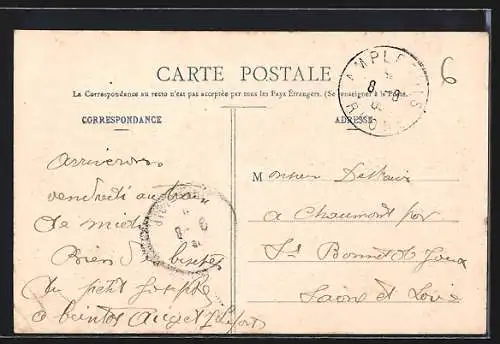 CARTE POSTALE
La Correspondance au recto n'est pas acceptée par tous les Pays Étrangers. (Se renseigner à la Poste.)
CORRESPONDANCE
ADRESSE
6
arriverons
vendredi au train
de midi
Bien des bises
du petit Joseph
a bientot
Monsieur
a Chaumont par
St Bonnet de Joux
Saone et Loire